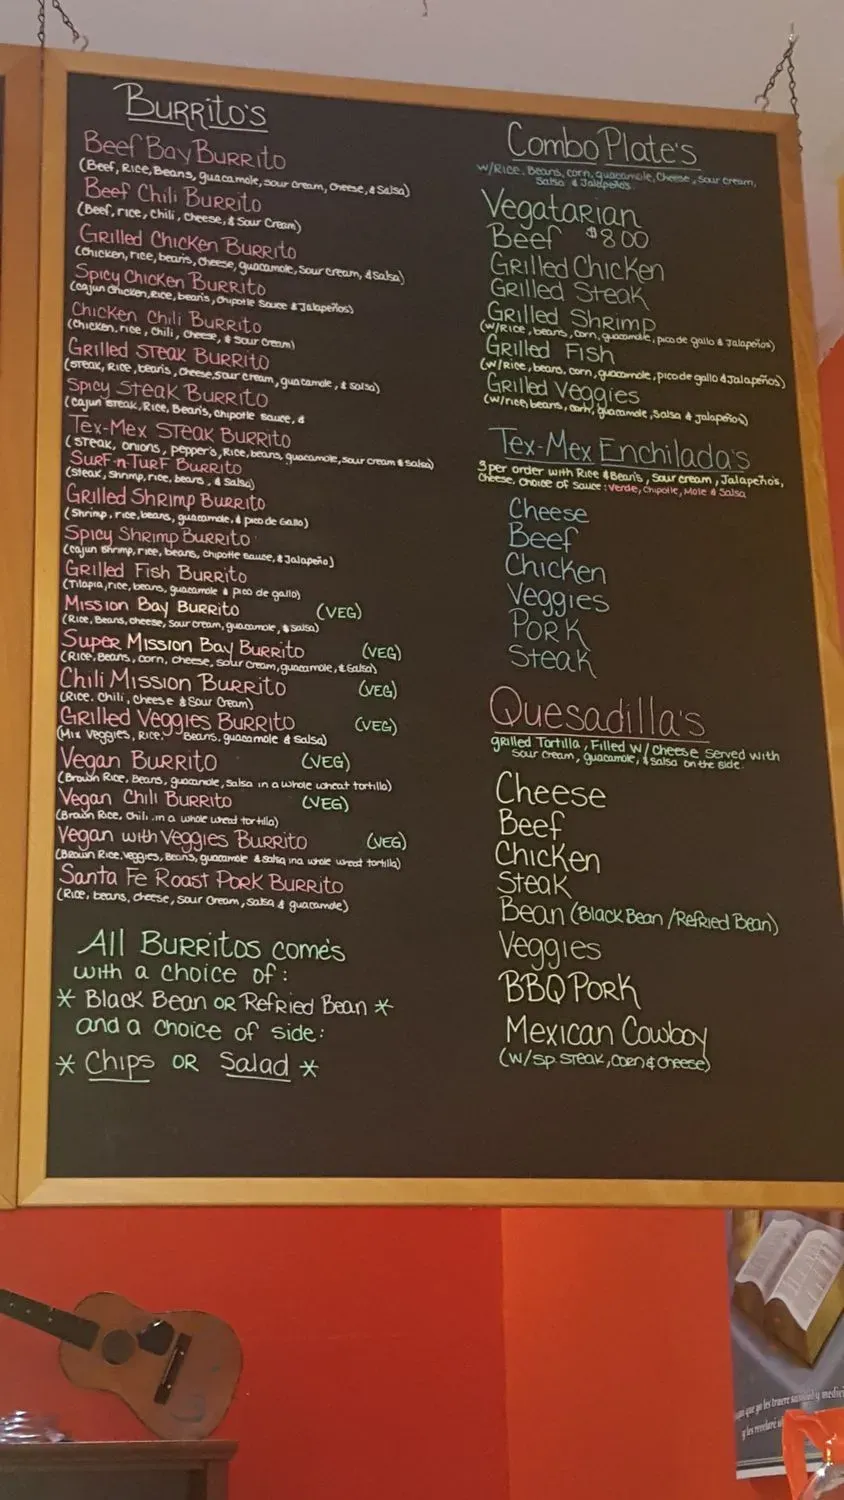 BURRITO'S
Beef Bay Burrito
(Beef, Rice, Beans, guacamole, sour cream, cheese, & Salsa)
Beef Chili Burrito
(Beef, rice, chili, cheese, & Sour Cream)
Grilled Chicken Burrito
(Chicken, rice, beans, cheese, guacamole, sour cream, & Salsa)
Spicy Chicken Burrito
(cajun chicken, rice, beans, chipotle Sauce & Jalapeños)
Chicken Chili Burrito
(Chicken, rice, chili, cheese, & Sour Cream)
Grilled Steak Burrito
(steak, Rice, beans, cheese, sour cream, guacamole, & salsa)
Spicy Steak Burrito
(cajun steak, Rice, Beans, chipotle sauce, &
Tex-Mex Steak Burrito
(steak, onions, pepper's, Rice, beans, guacamole, sour cream & salsa)
Surf-n-Turf Burrito
(steak, shrimp, rice, beans, & Salsa)
Grilled Shrimp Burrito
(Shrimp, rice, beans, guacamole, & pico de Gallo)
Spicy Shrimp Burrito
(cajun shrimp, rice, beans, chipotle sauce, & Jalapeño)
Grilled Fish Burrito
(Tilapia, rice, beans, guacamole & pico de gallo)
Mission Bay Burrito (VEG)
(Rice, Beans, cheese, sour cream, guacamole, & salsa)
Super Mission Bay Burrito (VEG)
(Rice, Beans, corn, cheese, sour cream, guacamole, & Salsa)
Chili Mission Burrito (VEG)
(Rice. Chili, cheese & Sour Cream)
Grilled Veggies Burrito (VEG)
(Mix Veggies, Rice, Beans, guacamole & Salsa)
Vegan Burrito (VEG)
(Brown Rice, Beans, guacamole, Salsa in a whole wheat tortilla)
Vegan Chili Burrito (VEG)
(Brown Rice, Chili, in a whole wheat tortilla)
Vegan with Veggies Burrito (VEG)
(Brown Rice, veggies, Beans, guacamole & Salsa in a whole wheat tortilla)
Santa Fe Roast Pork Burrito
(Rice, beans, cheese, sour Cream, salsa & guacamole)
All Burritos come's
with a choice of:
* Black Bean or Refried Bean *
and a choice of side:
* Chips or Salad *
Combo Plate's
w/Rice, Beans, corn, guacamole, Cheese, Sour cream,
Salsa & Jalapeños
Vegatarian
Beef $8.00
Grilled Chicken
Grilled Steak
Grilled Shrimp
(w/Rice, beans, corn, guacamole, pico de gallo & Jalapeños)
Grilled Fish
(w/Rice, beans, corn, guacamole, pico de gallo & Jalapeños)
Grilled Veggies
(w/rice, beans, corn, guacamole, Salsa & jalapeños)
Tex-Mex Enchilada's
3 per order with Rice & Beans, Sour cream, Jalapeño's,
Cheese, Choice of Sauce: Verde, Chipotle, Mole & Salsa
Cheese
Beef
Chicken
Veggies
Pork
Steak
Quesadilla's
grilled Tortilla, Filled w/ cheese Served with
Sour cream, guacamole, & Salsa on the side.
Cheese
Beef
Chicken
Steak
Bean (Black Bean / Refried Bean)
Veggies
BBQ Pork
Mexican Cowboy
(w/ sp. steak, corn & cheese)
que yo les traere sanidad y medici
y les revelaré